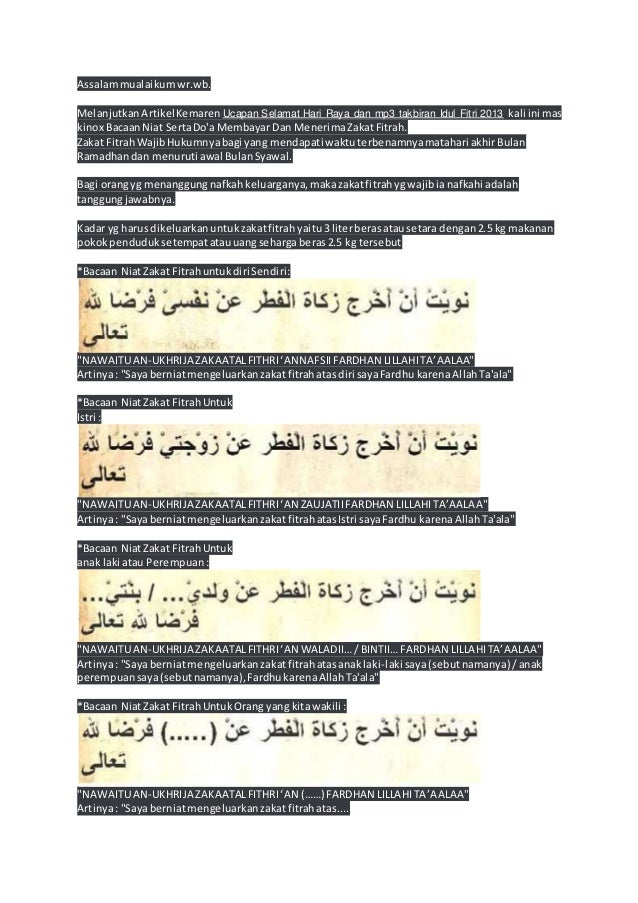 Assalammualaikum wr.wb.
Melanjutkan Artikel Kemaren Ucapan Selamat Hari Raya dan mp3 takbiran Idul Fitri 2013 kali ini mas
kinox Bacaan Niat Serta Do'a Membayar Dan Menerima Zakat Fitrah.
Zakat Fitrah Wajib Hukumnya bagi yang mendapati waktu terbenamnya matahari akhir Bulan
Ramadhan dan menuruti awal Bulan Syawal.
Bagi orang yg menanggung nafkah keluarganya, maka zakat fitrah yg wajib ia nafkahi adalah
tanggung jawabnya.
Kadar yg harus dikeluarkan untuk zakat fitrah yaitu 3 liter beras atau setara dengan 2.5 kg makanan
pokok penduduk setempat atau uang seharga beras 2.5 kg tersebut
*Bacaan Niat Zakat Fitrah untuk diri Sendiri:
نويْتُ أنْ أُخْرِج زكَاةَ الْفطْر عنْ نفْسىْ فرْضًا لله
تعالى
"NAWAITU AN-UKHRIJA ZAKAATAL FITHRI ‘ANNAFSII FARDHAN LILLAHI TA’AALAA"
Artinya : "Saya berniat mengeluarkan zakat fitrah atas diri saya Fardhu karena Allah Ta'ala"
*Bacaan Niat Zakat Fitrah Untuk
Istri :
نويْتُ أنْ أُخْرِج زكَاةَ الْفطْر عنْ زوْجَتيْ فرْضًا لله
تعالى
"NAWAITU AN-UKHRIJA ZAKAATAL FITHRI ‘AN ZAUJATII FARDHAN LILLAHI TA’AALAA"
Artinya : "Saya berniat mengeluarkan zakat fitrah atas Istri saya Fardhu karena Allah Ta'ala"
*Bacaan Niat Zakat Fitrah Untuk
anak laki atau Perempuan :
نويْتُ أنْ أُخْرِجَ زكَاةَ الْفطْر عنْ ولديْ... / بنْتيْ...
فرْضًا لله تعالى
"NAWAITU AN-UKHRIJA ZAKAATAL FITHRI ‘AN WALADII... / BINTII... FARDHAN LILLAHI TA’AALAA"
Artinya : "Saya berniat mengeluarkan zakat fitrah atas anak laki-laki saya (sebut namanya) / anak
perempuan saya (sebut namanya), Fardhu karena Allah Ta'ala"
*Bacaan Niat Zakat Fitrah Untuk Orang yang kita wakili :
نويْتُ أنْ أُخْرِجَ زكَاةَ الْفطْر عنْ (.....) فرْضًا لله
تعالى
"NAWAITU AN-UKHRIJA ZAKAATAL FITHRI ‘AN (......) FARDHAN LILLAHI TA’AALAA"
Artinya : "Saya berniat mengeluarkan zakat fitrah atas....